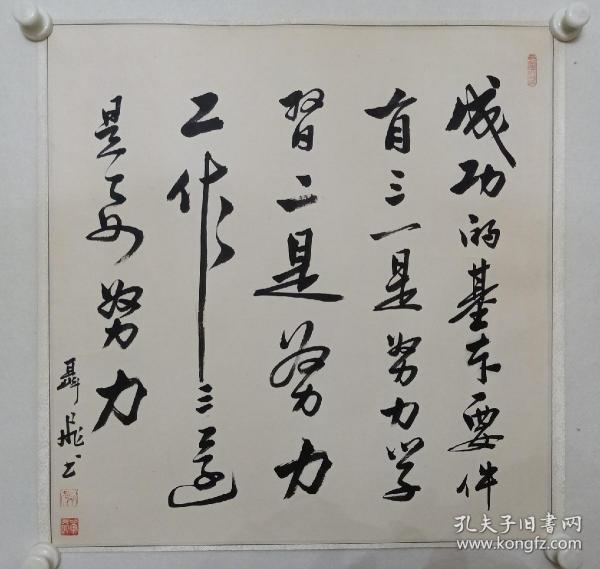 成功的基本要件
有三一是努力学
习二是努力
工作三还
是要努力
聂飞书
孔夫子旧书网
www.kongfz.com